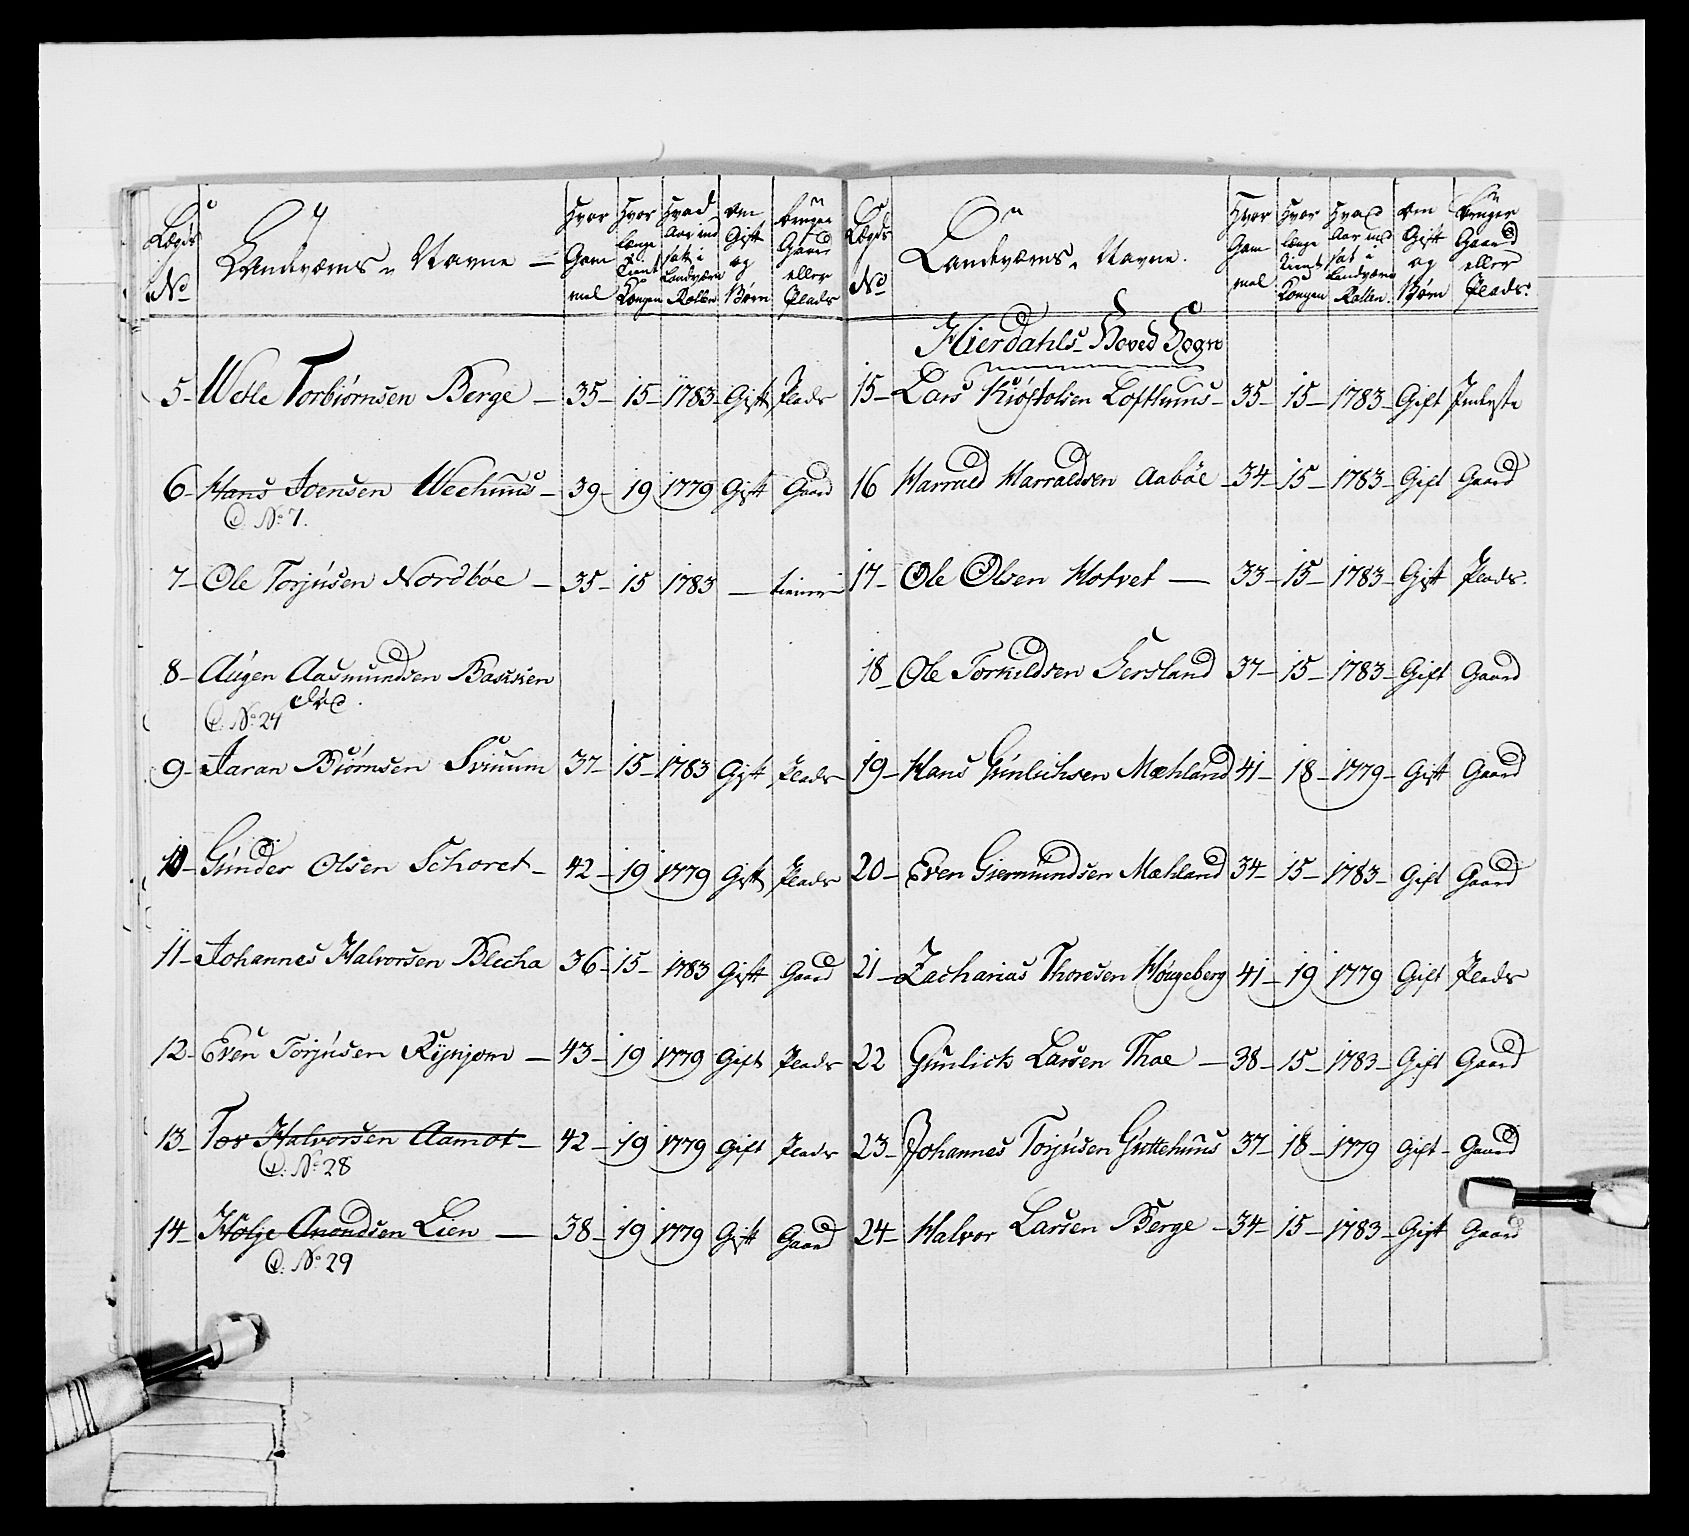 Lægds No
Landværns Navne
Hvor Gammel
Hvor længe Tient Kongen
Hvad Aar indsat i Landværns Rollen
Om Gift og Børn
bruger Gaard eller Plads
5 - Wetle Torbiørnsen Berge - 35 - 15 - 1783 - Gift Plads
6 - Hans Joensen Wechuus - 39 - 19 1779 Gift Gaard
No 7.
7 - Ole Torjusen Nordbøe - 35 - 15 1783 - tiener
8 - Augen Aasmundsen Bakken
død.
No 24
9 - Aaran Biørnsen Sviuum 37 - 15 - 1783 Gift Plads
10 - Gunder Olsen Schoret - 42 - 19 1779 Gift Plads
11 - Johannes Halvorsen Blecha 36 - 15 - 1783 Gift Gaard
12 - Even Torjusen Rijsnjom - 43 - 19 1779 Gift Plads
13 - Tor Halvorsen Aamot - 42 - 19 1779 Gift Plads
No 28
14 - Holje Anondsen Lien - 38 - 19 1779 Gift Gaard
No 29
Lægds No
Landværns Navne.
Hvor Gammel
Hvor længe Tient Kongen
Hvad Aar indsat i Landværns Rollen.
Om Gift og Børn
bruger Gaard eller Plads.
Hierdahls Hoved Sogn
15 - Lars Kiøstolsen Lofthuus - 35 - 15 - 1783 - Gift Inderste
16 Harrald Harraldsen Aabøe - 34 - 15 - 1783 - Gift Gaard
17 - Ole Olsen Hofvet - 33 - 15 - 1783 - Gift Plads.
18 - Ole Torkildsen Gersland 37 - 15 - 1783 - Gift Gaard
19 - Hans Gunlichsen Mæhland 41 - 18 - 1779 - Gift Gaard
20 - Even Giermundsen Mæhland 34 - 15 - 1783 - Gift Gaard
21 - Zacharias Thoresen Hougeberg 41 - 19 1779 Gift Plads
22 Gunlich Larsen Thoe - 38 - 15 - 1783 - Gift Gaard
23 - Johannes Torjusen Guttehuus 37 - 18 - 1779 Gift - Gaard
24 - Halvor Larsen Berge - 34 - 15 - 1783 - Gift Gaard